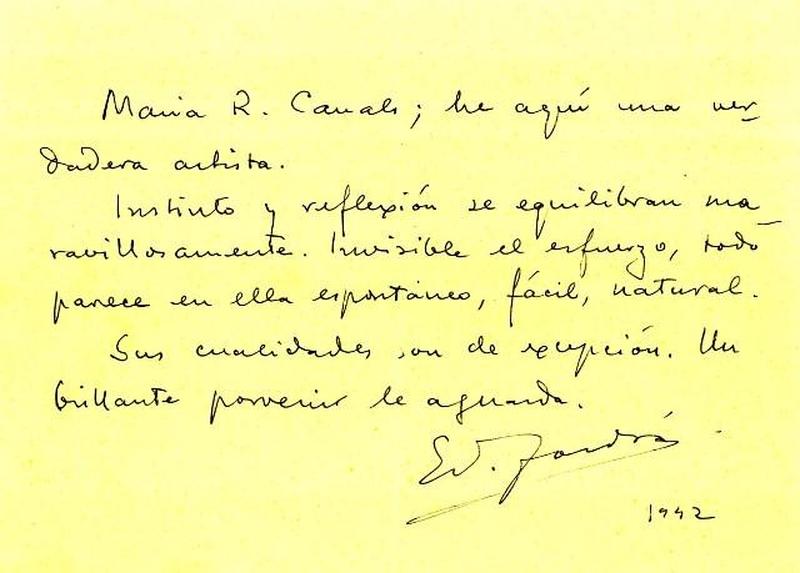 Maria R. Canals; he aquí una ver-
dadera artista.
Instinto y reflexión se equilibran ma-
ravillosamente. Invisible el esfuerzo, todo
parece en ella espontáneo, fácil, natural.
Sus cualidades son de excepción. Un
brillante porvenir le aguarda.
Ed.
1942